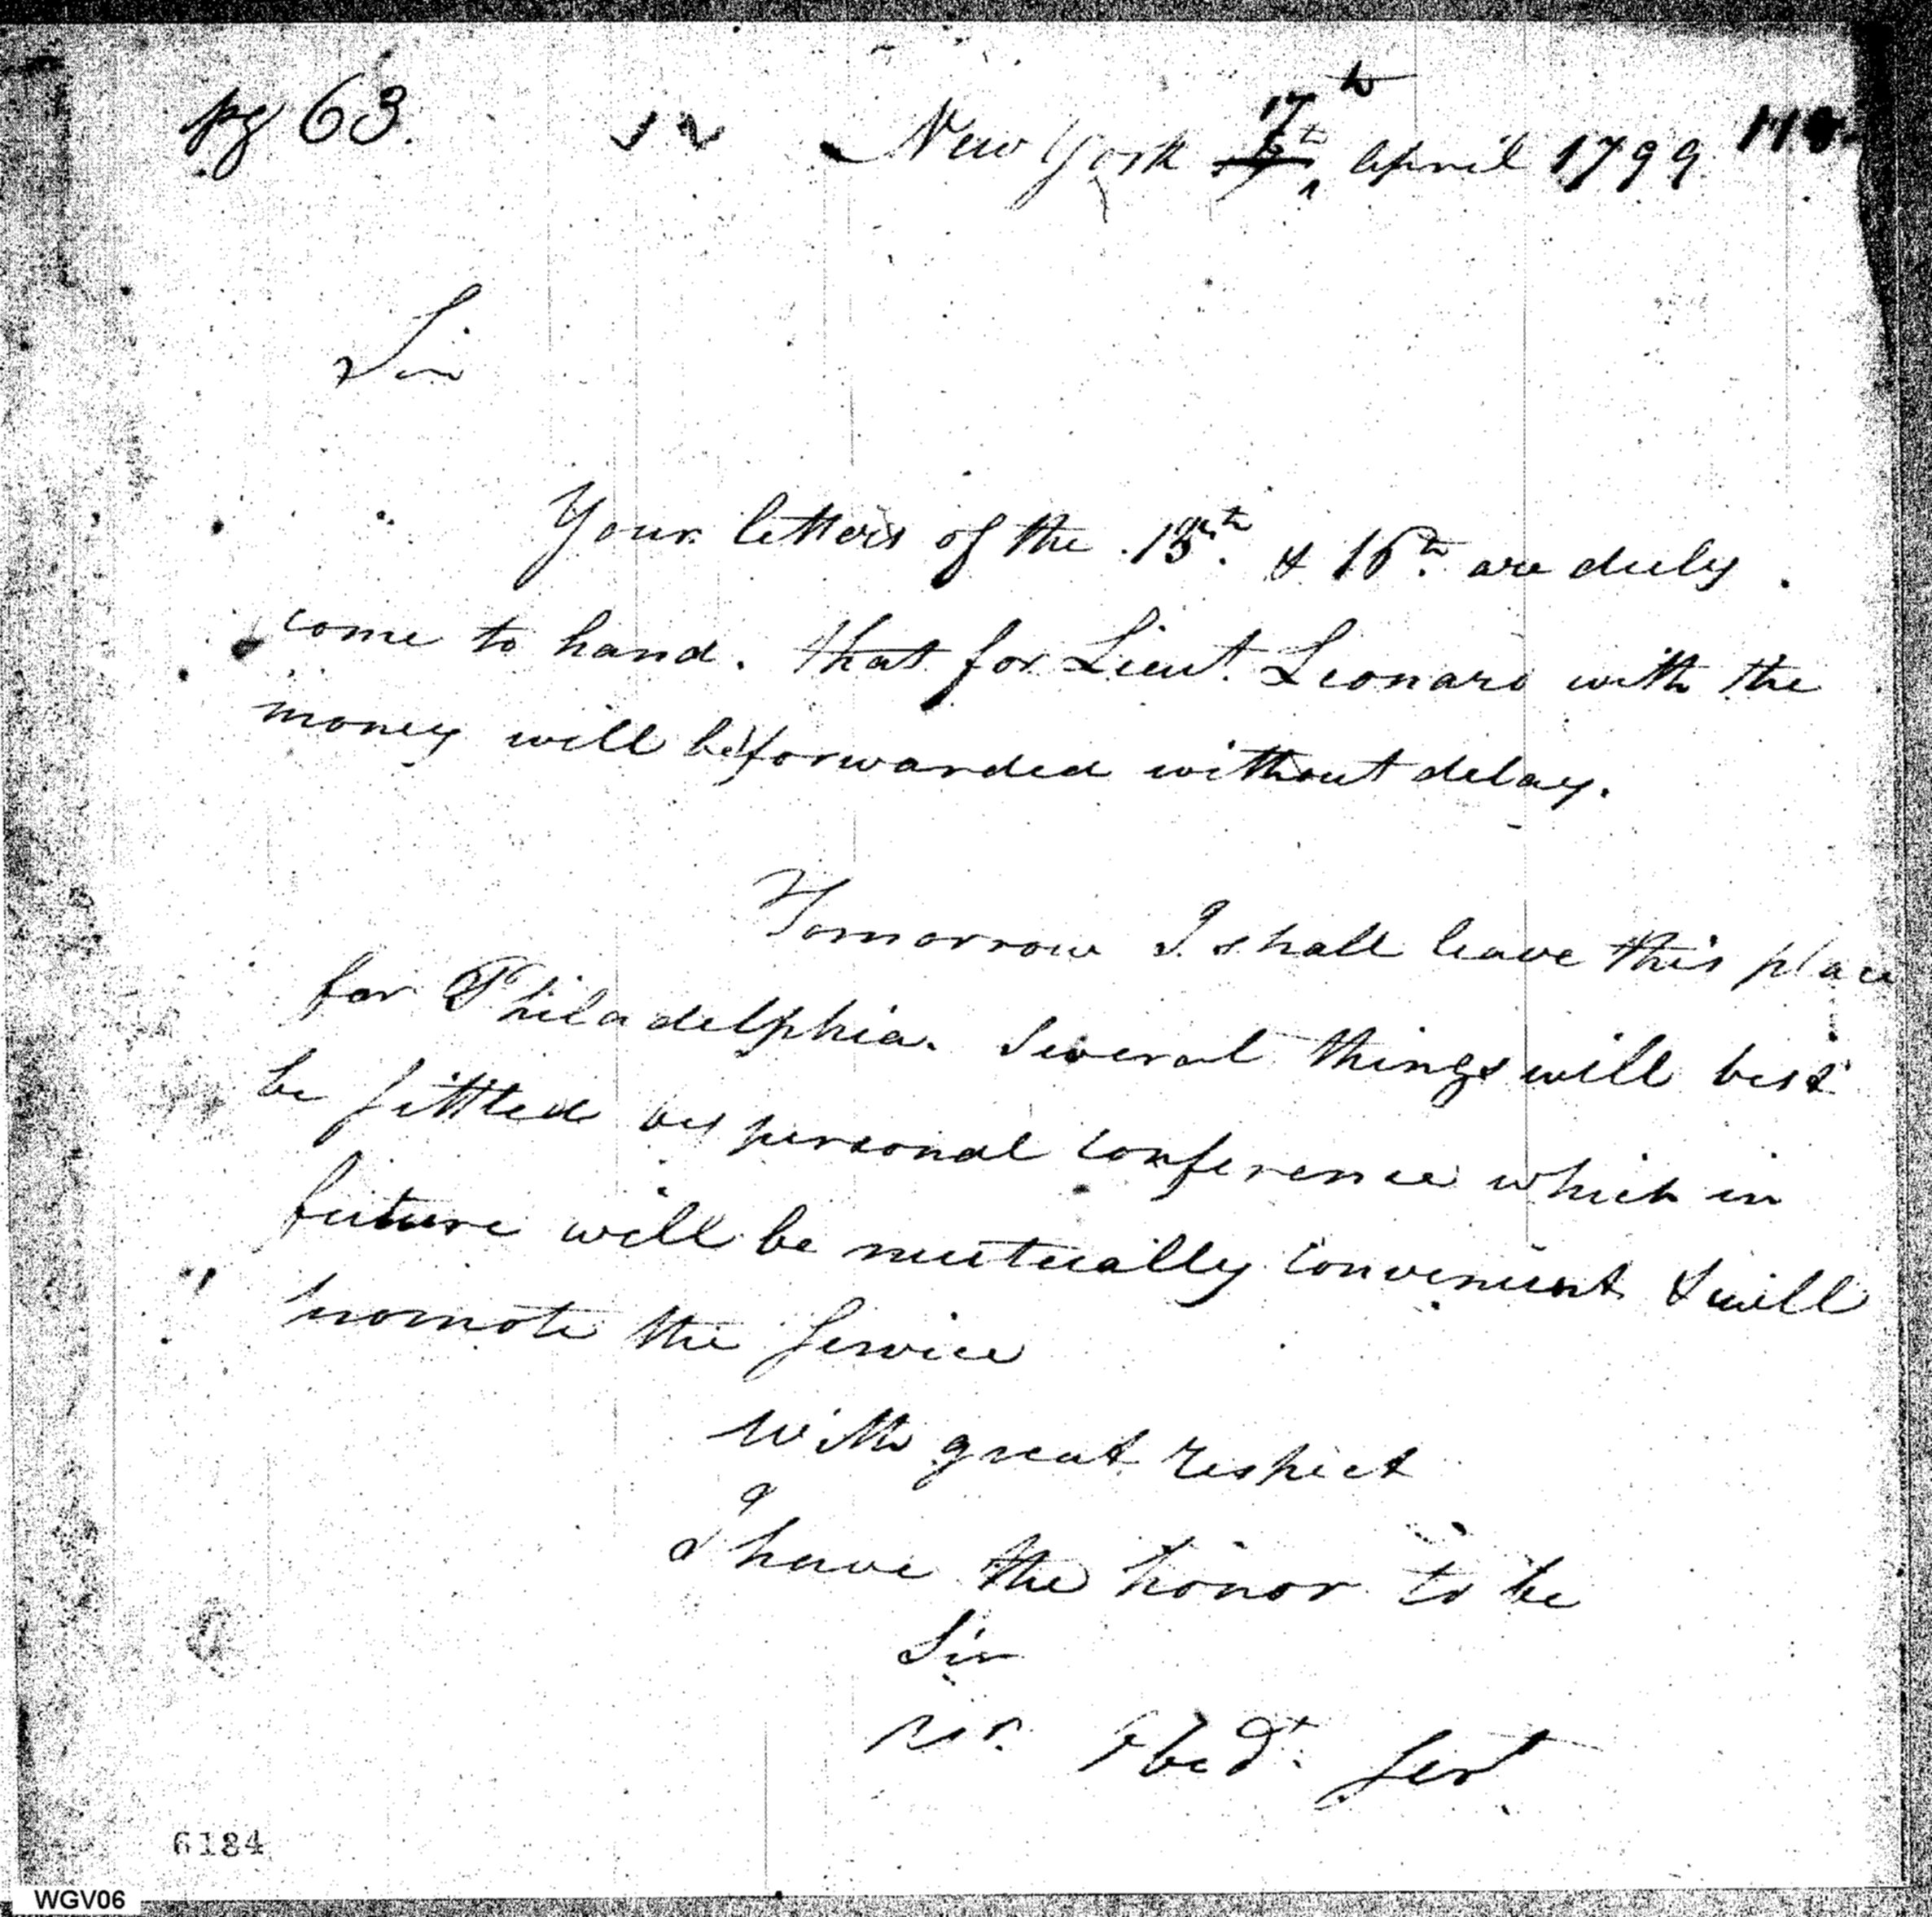 pg 63.
New York 17th April 1799
Sir
Your letters of the 15th. & 16th. are duly
come to hand. that for Lieut. Leonard with the
money will be forwarded without delay.
Tomorrow I shall leave this place
for Philadelphia. Several things will best
be settled by personal conference which in
future will be mutually convenient & will
promote the service
With great respect
I have the honor to be
Sir
yr. Obedt. ser
6184
WGV06